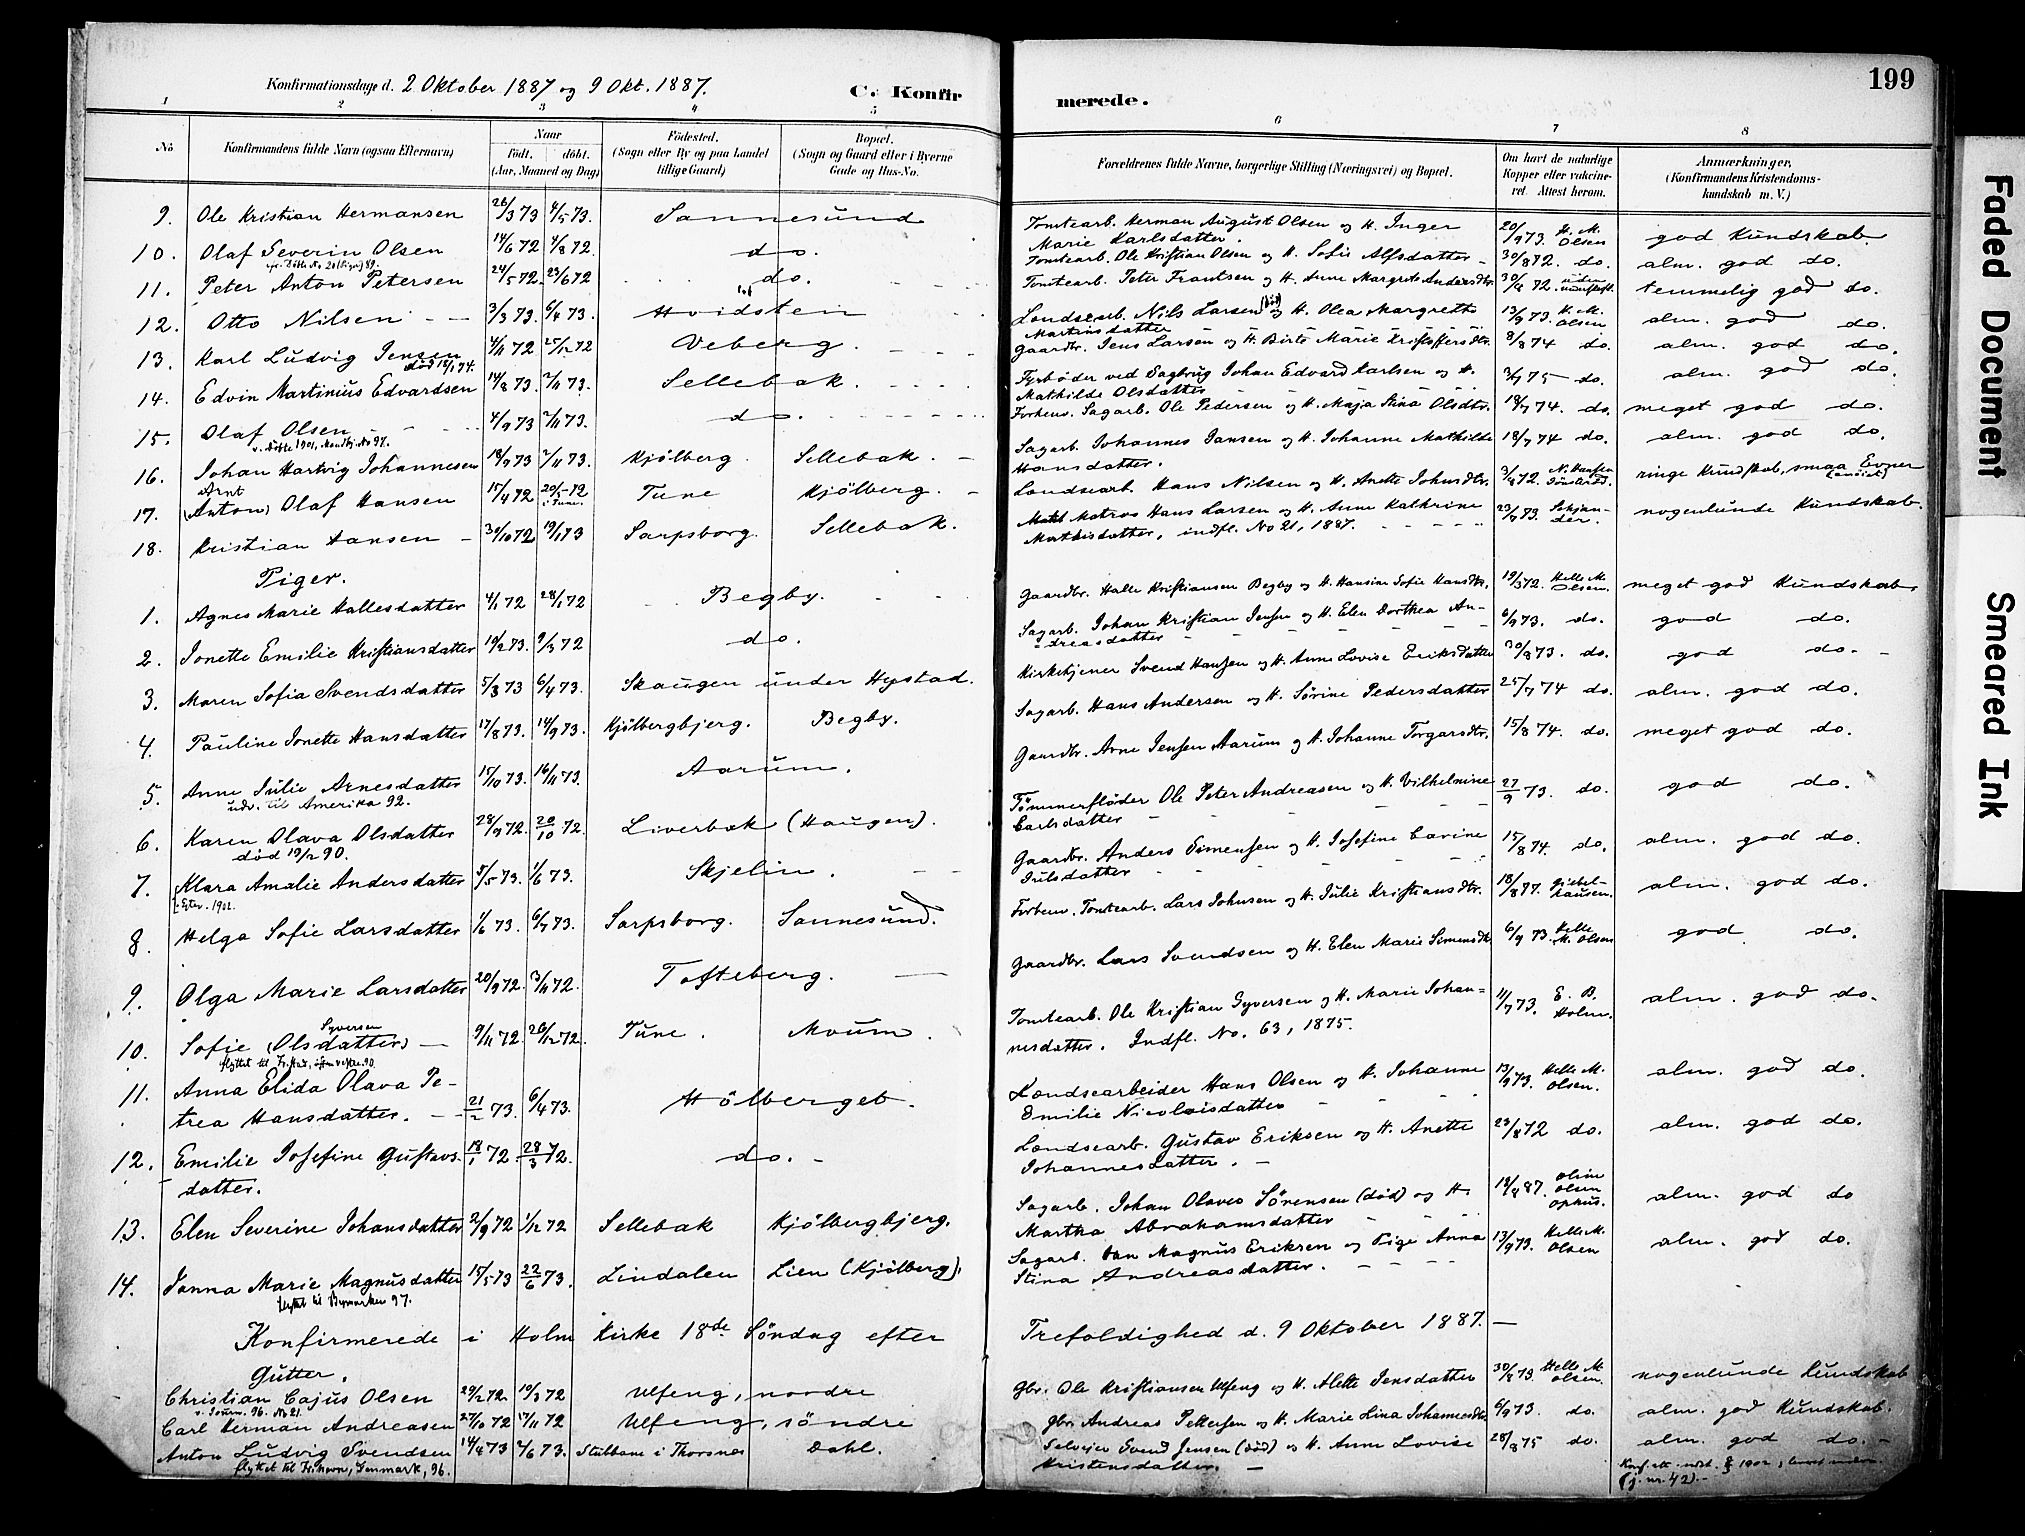 Konfirmationsdage d. 2 Oktober 1887 og 9 Okt. 1887.
C. Konfirmerede.
199
1 2 3 4 5 6 7 8
No
Konfirmandens fulde Navn (ogsaa Efternavn)
Naar
Födt. döbt.
(Aar, Maaned og Dag)
Födested.
(Sogn eller By og paa Landet tillige Gaard)
Bopæl.
(Sogn og Gaard eller i Byerne Gade og Hus-No.
Forældrenes fulde Navne, borgerlige Stilling (Næringsvei) og Bopæl.
Om havt de naturlige Kopper eller vakcineret. Attest herom.
Anmærkninger,
(Konfirmandens Kristendomskundskab m. V.)
9. Ole Kristian Hermansen 26/3 73 4/5 73. Sannesund Tomtearb. Herman August Olsen og H. Inger Marie Karlsdatter. 20/9 73. H. M. Olsen god Kundskab.
10. Olaf Severin Olsen 14/6 72 4/8 72. do. Tomtearb. Ole Kristian Olsen og H. Sofie Alfsdatter 30/8 72. do. alm. god do.
11. Peter Anton Petersen 24/5 72. 23/6 72 do. Tomtearb. Peter Frantsen og H. Anne Margrete Andersdtr. temmelig god do.
12. Otto Nilsen 3/3 73. 6/4 73. Hvidsten Londsearb. Nils Larsen (död) og H. Olea Margrethe Martinsdatter 13/9 73. H. M. Olsen alm. god do.
13. Karl Ludvig Jensen 4/11 72 25/12 72 Veberg. Gaardbr. Jens Larsen og H. Birte Marie Kristoffersdtr. 8/8 74 do. alm. god do.
14. Edvin Martinius Edvardsen 14/8 73. 2/11 73. Sellebak. Fyrböder ved Sagbrug Johan Edvard Karlsen og H. Mathilde Olsdatter 3/7 75 do. alm. god do.
15. Olaf Olsen 4/9 73 2/11 73. do. Forhenv. Sagarb. Ole Pedersen og H. Maja Stina Olsdtr. 18/7 74. do. meget god do.
16. Johan Hartvig Johannesen 18/9 73 2/11 73. Kjölberg. Sellebak. Sagarb. Johannes Jansen og H. Johanne Mathilde Hansdatter. 18/7 74 do. alm. god do.
17. Arnt (Anton) Olaf Hansen 15/4 72 20/5 72 i Tune. Tune Kjölberg. Londsearb. Hans Nilsen og H. Anette Johnsdtr. ringe Kundskab, smaa Evner
18. Kristian Hansen 30/10 72 19/1 73 Sarpsborg. Sellebak. Matros Hans Larsen og H. Anne Kathrine Mathisdatter, indfl. No 21, 1887. nogenlunde Kundskab.
Piger.
1. Agnes Marie Hallesdatter 4/1 72 28/1 72 Begby. Gaardbr. Halle Kristiansen Begby og H. Hansine Sofie Hansdtr. 19/3 72. Helle M. Olsen. meget god Kundskab
2. Jonette Emilie Kristiansdatter 19/2 73. 9/3 72 do. Sagarb. Johan Kristian Jensen og H. Elen Dorthea Andreasdatter 6/9 73. do. god do.
3. Maren Sofia Svendsdatter 5/3 73 6/4 73. Skaugen under Hystad. Kirketjener Svend Hansen og H. Anne Lovise Eriksdatter 30/8 73. do. god do.
4. Pauline Jonette Hansdatter 17/8 73. 14/9 73. Kjölbergbjerg. Begby. Sagarb. Hans Andersen og H. Sörine Pedersdatter 25/7 74 do. alm. god do.
5. Anne Julie Arnesdatter 15/10 73. 16/11 73. Aarum. Gaardbr. Arne Jensen Aarum og H. Johanne Torgarsdtr. 15/8 74. do. meget god do.
udv. til Amerika 92.
6. Karen Olava Olsdatter 28/9 72. 20/10 72. Liverbæk (Haugen). Tömmerflöder Ole Peter Andreasen og H. Vilhelmine Carlsdatter 27/9 73. do. god do.
död 19/2 90.
7. Klara Amalie Andersdatter 5/5 73. 1/6 73. Skjelin. Gaardbr. Anders Simensen og H. Josefine Carine Julsdatter 15/8 74. do. alm. god do.
8. Helga Sofie Larsdatter 1/6 73. 6/7 73. Sarpsborg. Sannesund. Forhenv. Tomtearb. Lars Johnsen og H. Julie Kristiansdtr. 18/8 77. Giebelhausen. alm. god do.
9. Olga Marie Larsdatter 20/9 72. 3/11 72. Tofteberg. Gaardbr. Lars Svendsen og H. Elen Marie Simensdtr. 6/9 73. Helle M. Olsen god do.
10. Sofie (Olsdatter) Syversen 9/11 72. 26/12 72. Tune. Moum. Tomtearb. Ole Kristian Syversen og H. Marie Johannesdatter. Indfl. No. 63, 1875. 11/7 73. E. B. Holm. alm. god do.
11. Anna Elida Olava Petrea Hansdatter. 21/2 73. 6/4 73. Hölberget. Londsearbeider Hans Olsen og H. Johanne Emilie Nicolaisdatter 13/9 73. Helle M. Olsen. alm. god do.
12. Emilie Josefine Gustavsdatter. 18/1 72 28/3 72. do. Londsearb. Gustav Eriksen og H. Anette Johannesdatter. 23/8 72 do. alm. god do.
13. Elen Severine Johansdatter 2/9 72 1/12 72 Sellebak Kjölbergbjerg. Sagarb. Johan Olaves Sörensen (död) og H. Martha Abrahamsdatter 18/8 87. Oline Olsen Ophus. alm. god do
14. Janna Marie Magnusdatter 15/5 73 22/6 73. Lindalen Lien (Kjölberg). Sagarb. Magnus Eriksen og Pige Anna Stina Andreasdatter. 13/9 73. Helle M. Olsen alm. god do.
flyttet til Bymarken 97.
Konfirmerede i Holm Kirke 18de Söndag efter Trefoldighed d. 9 Oktober 1887.
Gutter.
Christian Cajus Olsen 29/2 72 10/3 72 Ulfeng, nordre Gbr. Ole Kristiansen Ulfeng og H. Alette Jensdatter 30/8 73. Helle M. Olsen. nogenlunde Kundskab
v. Journ. 96. No 21.
Carl Herman Andreasen 27/10 72 17/11 72 Ulfeng, söndre Gbr. Andreas Pettersen og H. Marie Lina Johannesdtr. 6/9 73. do. alm. god Kundskab.
Anton Ludvig Svendsen 14/4 73 2/6 73. i Thorsnes Dahl. Selveier Svend Jensen (död) og H. Anne Lovise Kristensdatter. 28/8 75 do. alm. god do.
flyttet til Fr.havn, Danmark, 96.
(j. nr. 42).
Faded Document
Smeared Ink